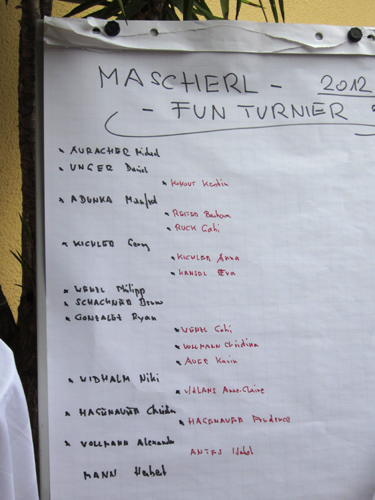 MASCHERL - 2012
- FUN TURNIER
AURACHER Michael
UNGER Daniel
KOHOUT Kerstin
ADUNKA Manfred
REITER Barbara
RUCK Gabi
KICHLER Georg
KICHLER Anna
HANSDL Eva
WENZL Philipp
SCHACHNER Bruno
GONZALEZ Ryan
WENZL Gabi
VOLLMANN Christina
AUER Karin
VIDHALM Niki
Anne-Claire
HAGENAUER Christian
HAGENAUER Prudence
VOLLMANN Alexander
ANTES Isabel
MANN Herbert